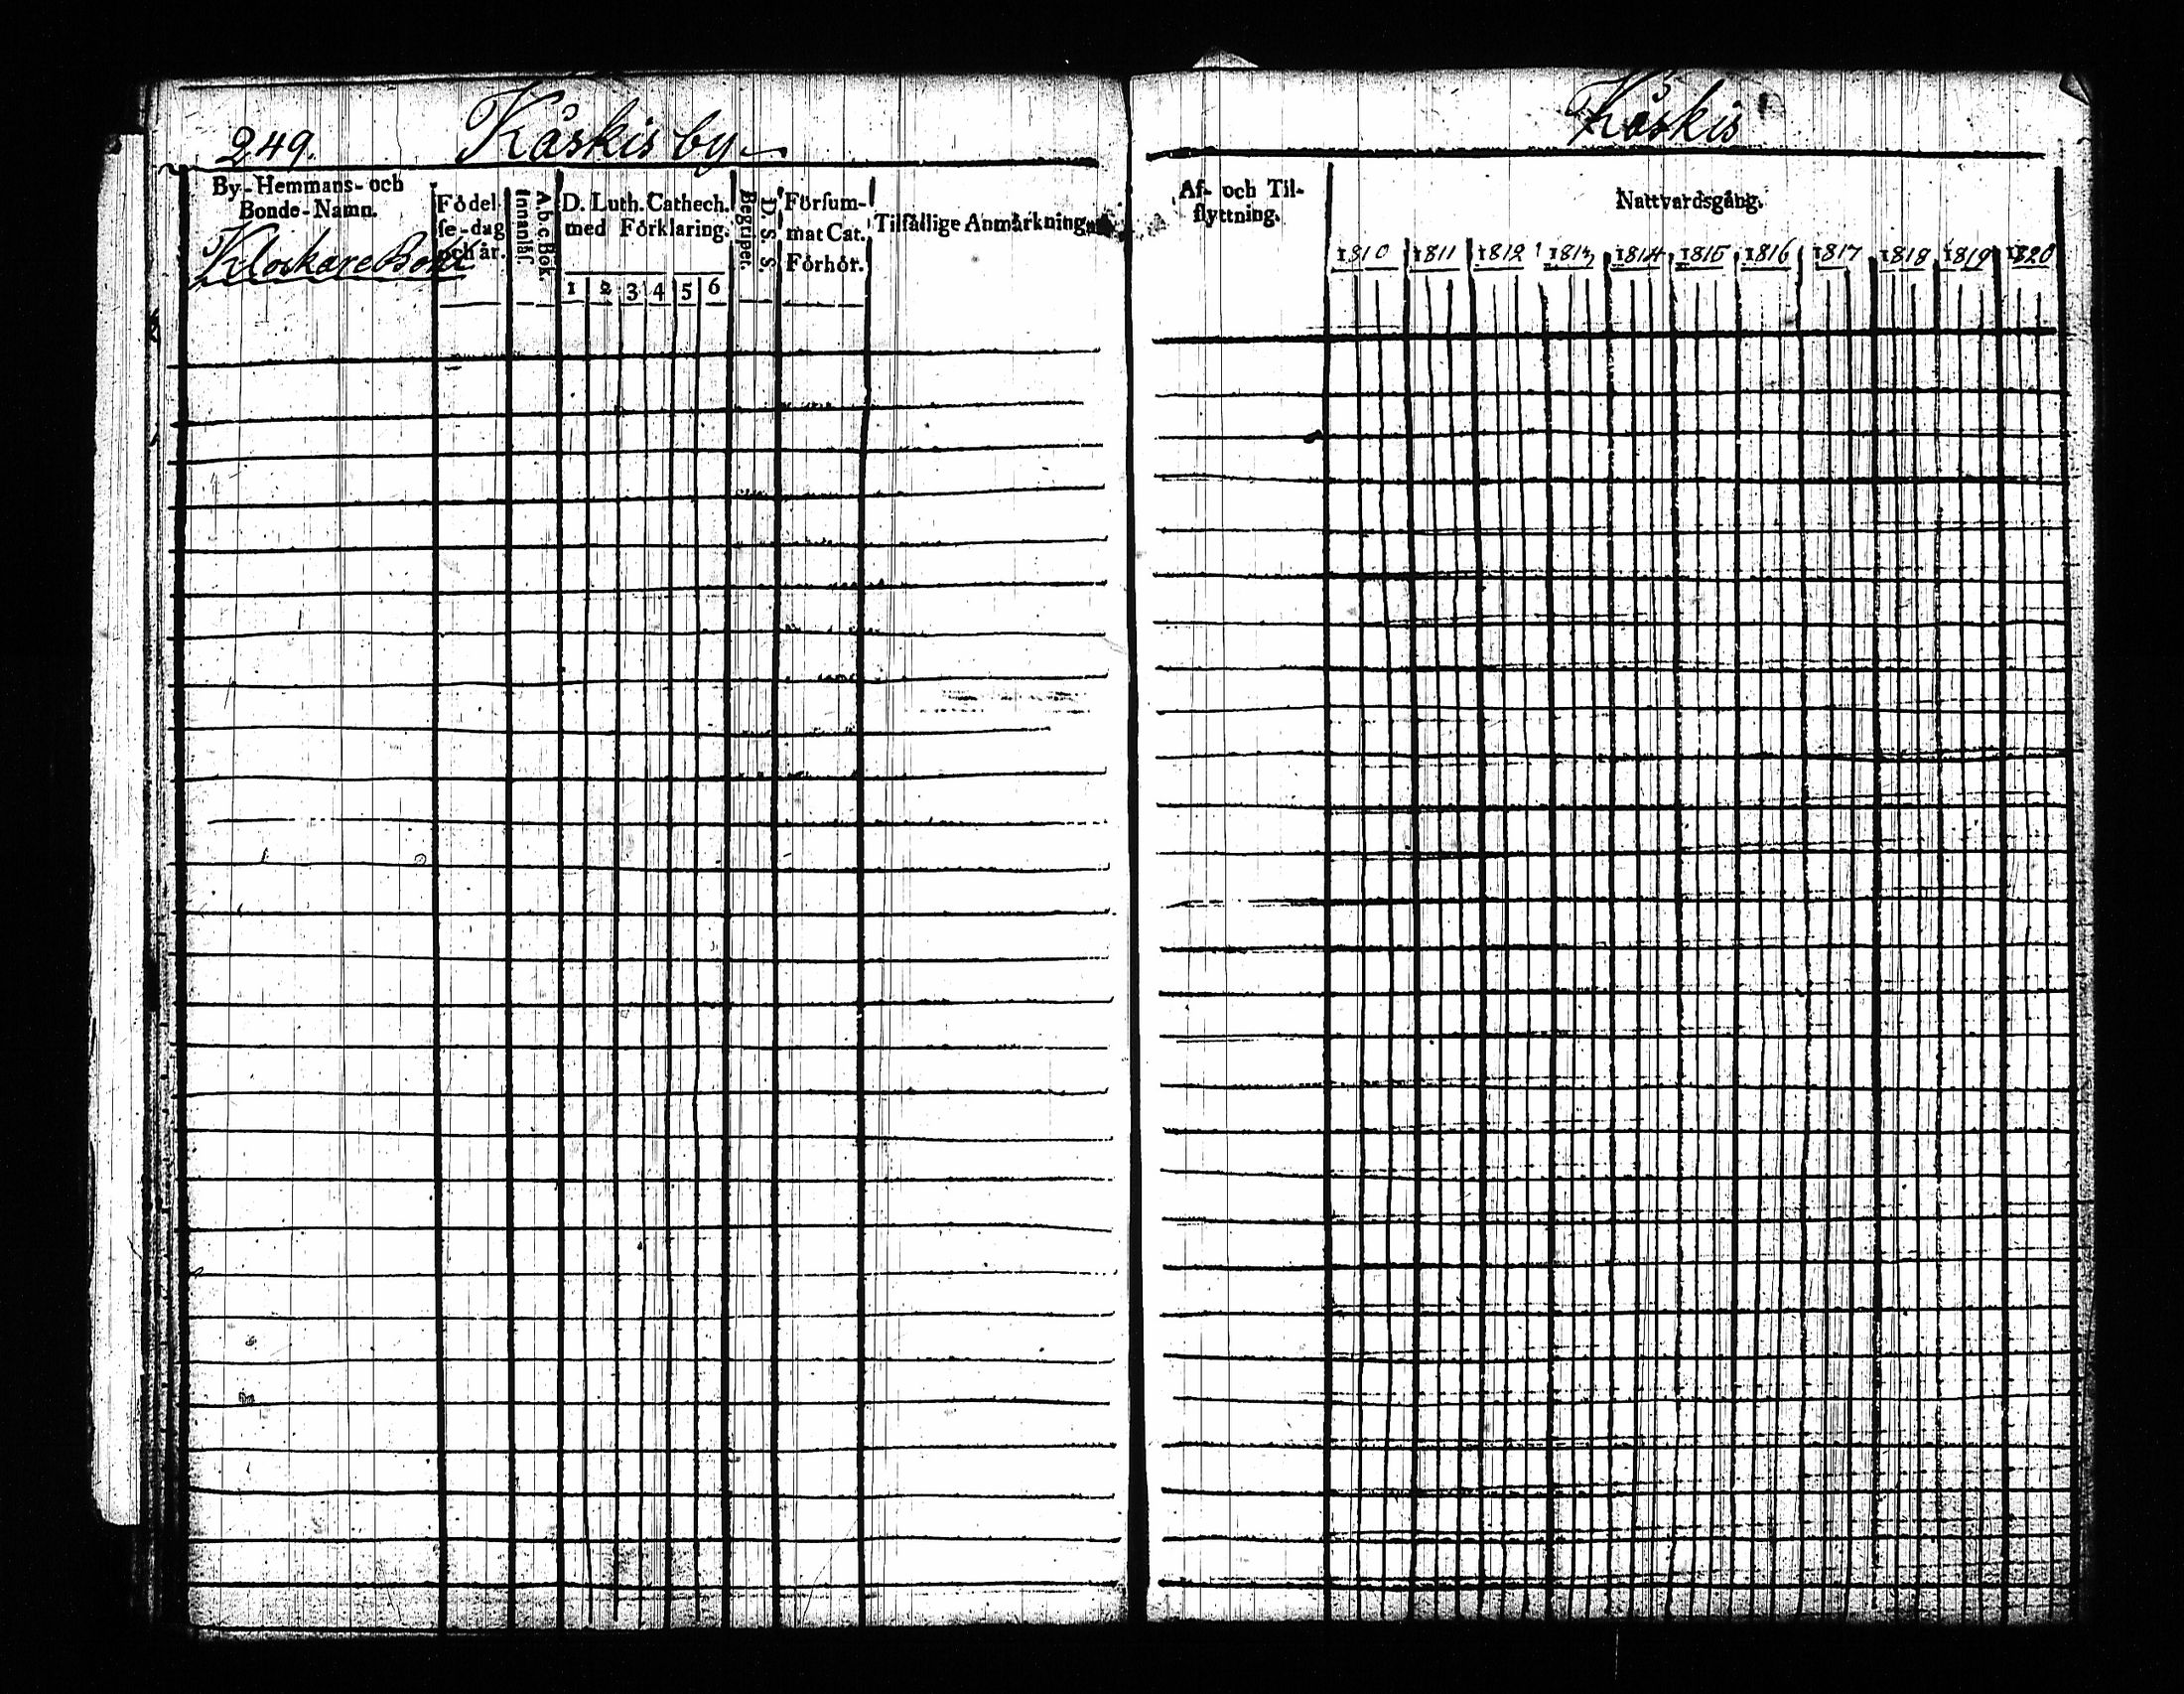 249. Kåskis by
By-Hemmans- och
Bonde-Namn.
Klockare Bohl
Födel-
se-dag
och år.
Innanläs.
A b c Bok.
D. Luth. Cathech.
med Förklaring.
1 2 3 4 5 6
Begripet.
D. S. S.
Försum-
mat Cat.
Förhör.
Tilfällige Anmärkningar
Kåskis
Af- och Til-
flyttning.
Nattvardsgång.
1810 1811 1812 1813 1814 1815 1816 1817 1818 1819 1820